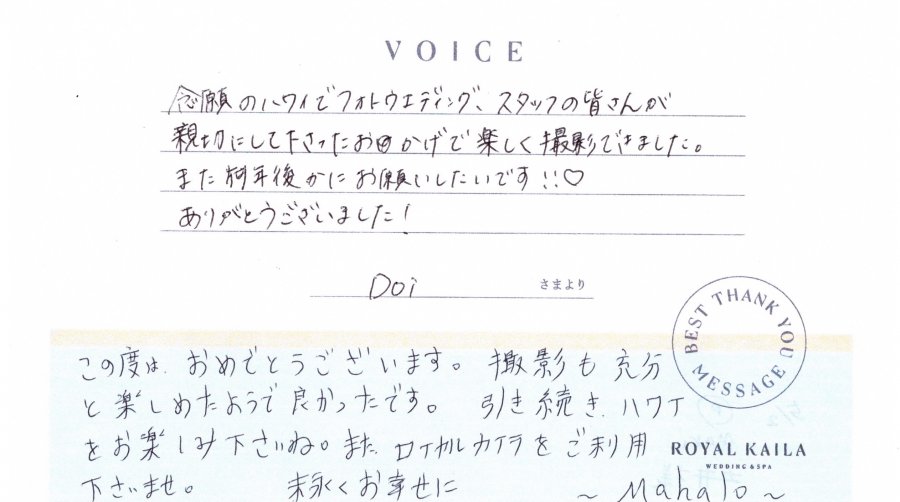 VOICE
念願のハワイでフォトウエディング、スタッフの皆さんが
親切にして下さったおかげで楽しく撮影できました。
また何年後かにお願いしたいです!!♡
ありがとうございました!
Doi さまより
BEST THANK YOU MESSAGE
この度は、おめでとうございます。撮影も充分
と楽しめたようで良かったです。引き続き、ハワイ
をお楽しみ下さいね。また、ロイヤルカイラをご利用
ROYAL KAILA
WEDDING & SPA
下さいませ。 末永くお幸せに ～Mahalo～